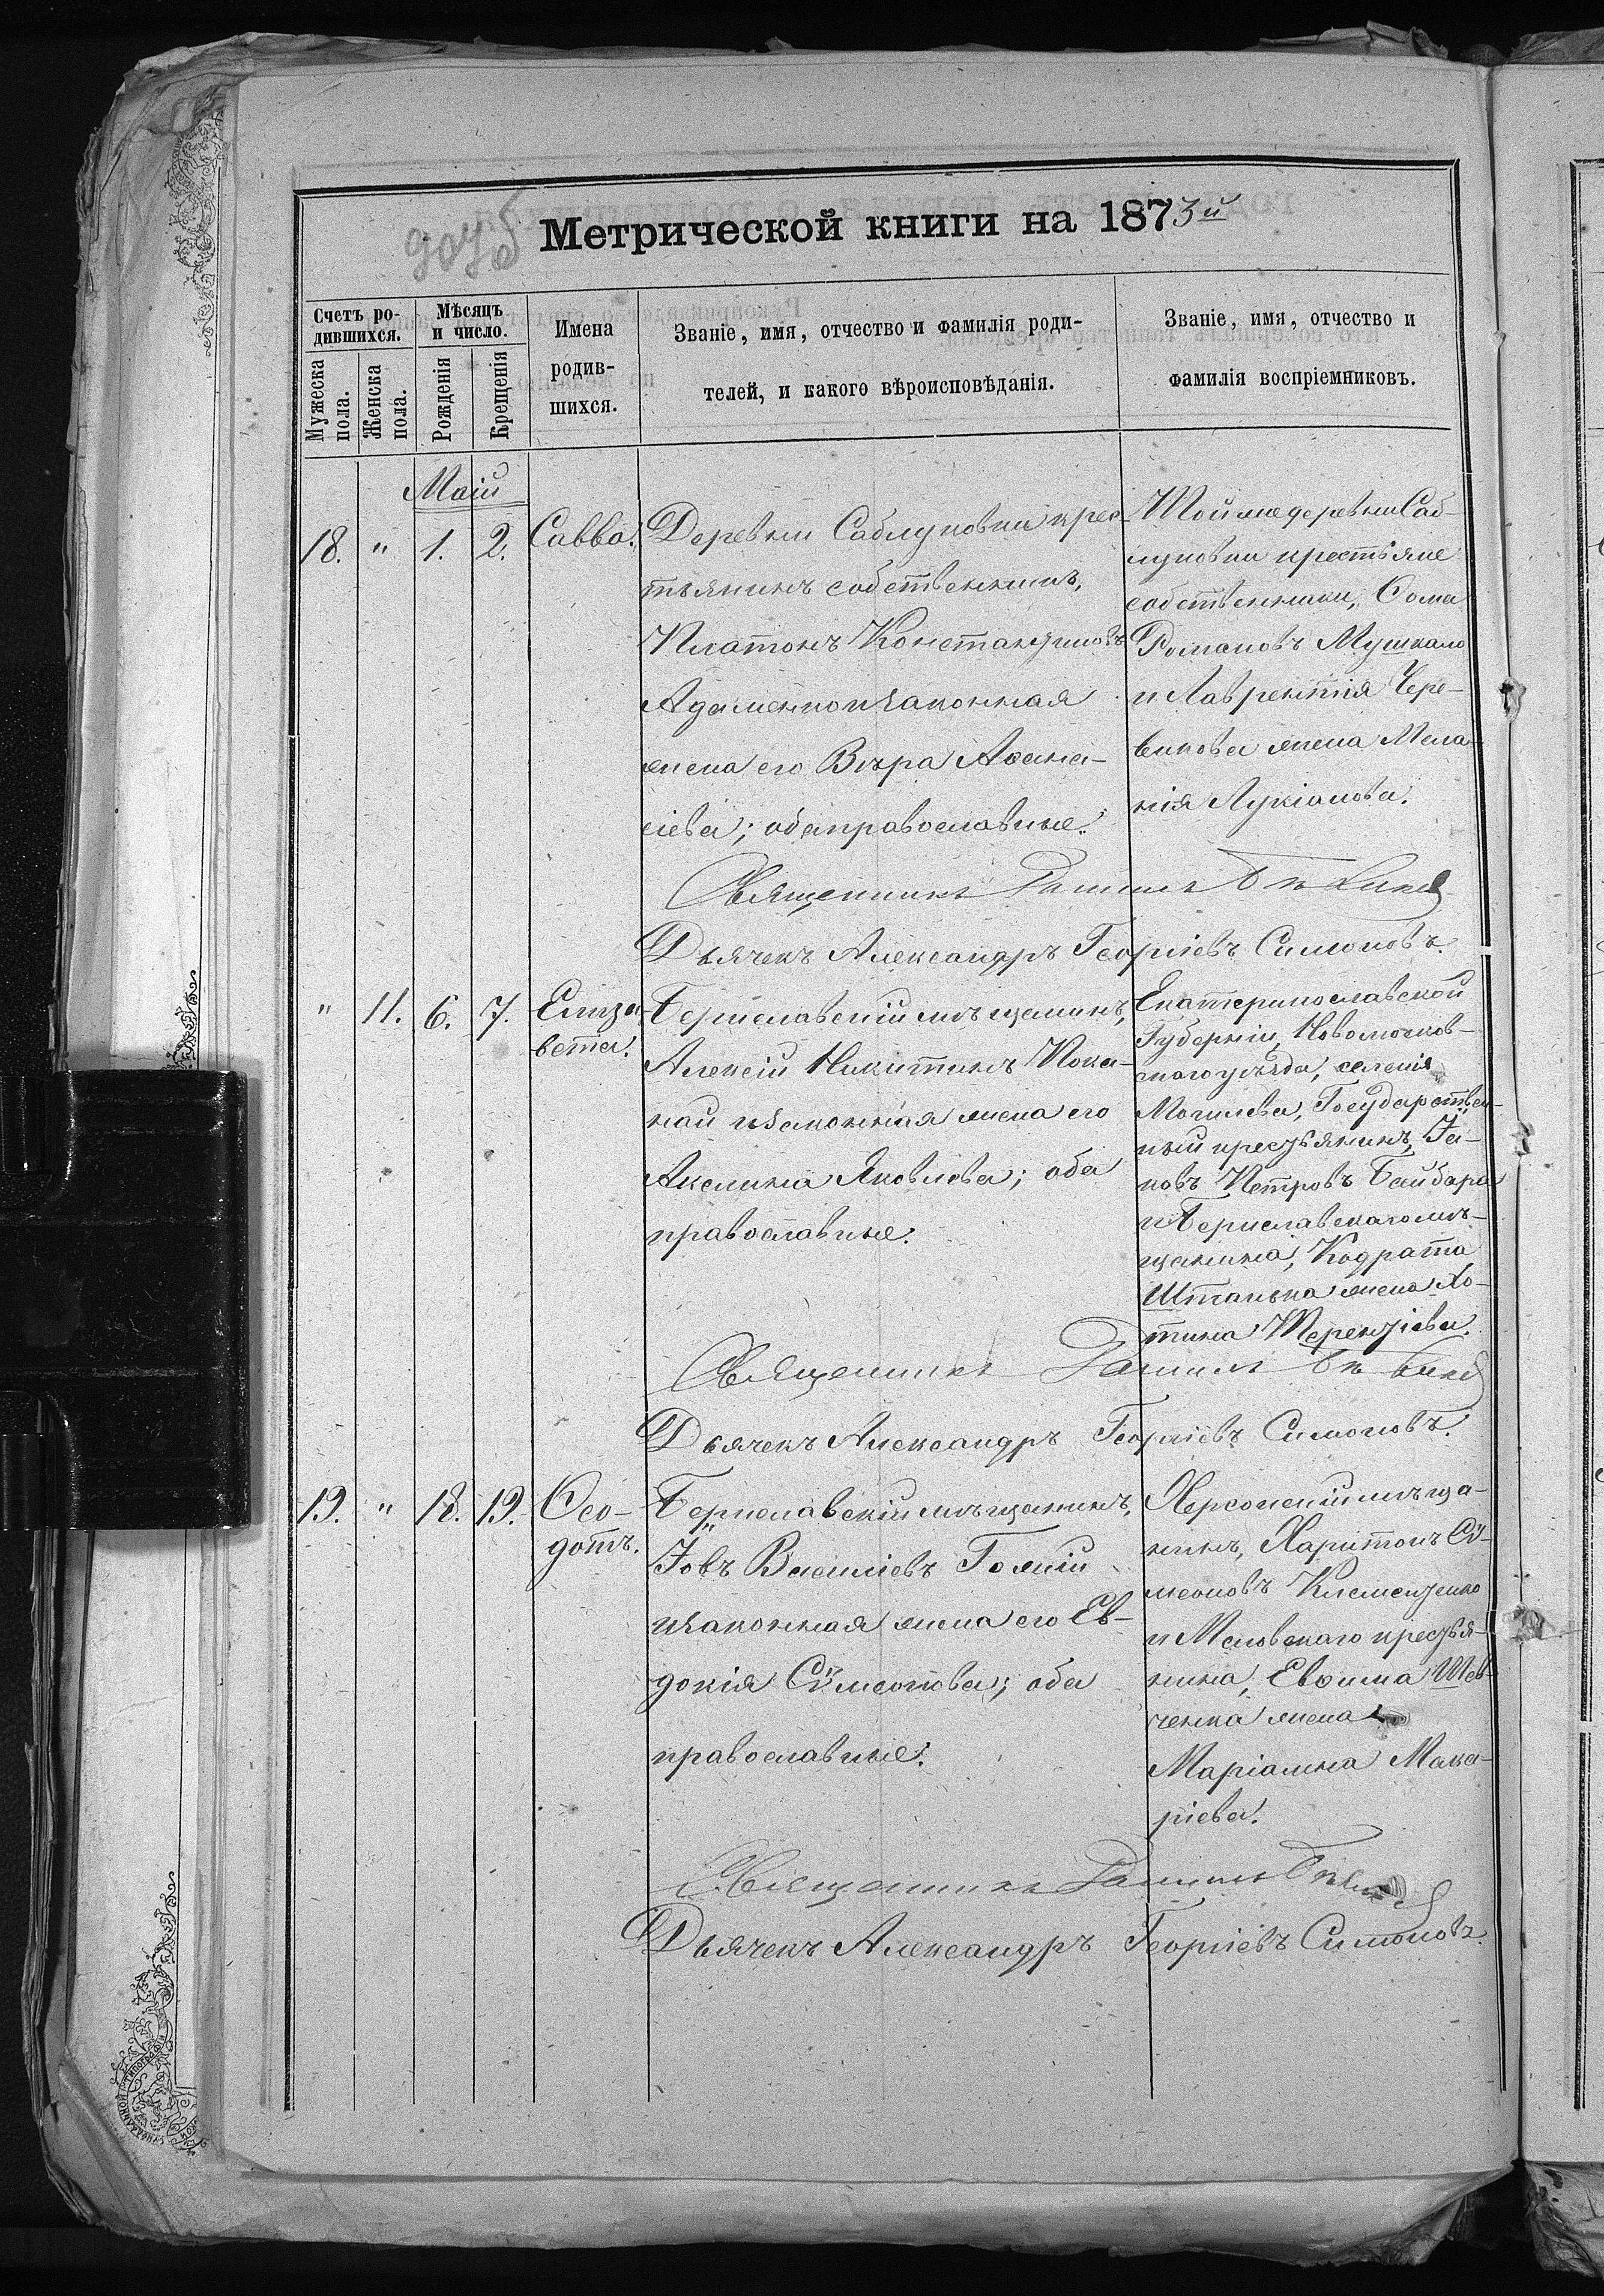 Метрической книги на 1873й
Счетъ ро-
дившихся.
Мужеска
пола.
Женска
пола.
Мѣсяцъ
и число.
Рожденія
Крещенія
Имена
родив-
шихся.
Званіе, имя, отчество и фамилія роди-
телей, и какого вѣроисповѣданія.
Званіе, имя, отчество и
фамилія воспріемниковъ.
Маій
18. " 1. 2. Савва.
Деревни Саблуковки крес-
тьянинъ собственникъ,
Платонъ Константиновъ
Адаменко и законная
жена его Вѣра Аѳана-
сіева; оба православные.
Той же деревни Саб-
луковки крестьяне
собственники, Ѳома
Романовъ Мушкало
и Лаврентія Чере-
викова жена Мела-
нія Лукіанова.
Священникъ Даніилъ
Дьячекъ Александръ Георгіевъ Симоновъ.
" 11. 6. 7. Елиза-
вета.
Бериславскій мѣщанинъ,
Алексій Никитинъ Пока-
най и законная жена его
Акилина Яковлева; оба
православные.
Екатеринославской
Губерніи, Новомосков-
скаго уѣзда, селенія
Могилева, Государствен-
ный крестьянинъ, Іа-
ковъ Петровъ Байбара
и Бериславскаго мѣ-
щанина, Кодрата
Штанька жена Хо-
тина Терентіева.
Священникъ Даніилъ
Дьячекъ Александръ Георгіевъ Симоновъ.
19. " 18. 19. Ѳео-
дотъ.
Бериславскій мѣщанинъ,
Іовъ Василіевъ Гожій
и законная жена его Ев-
докія Сѵмеонова; оба
православные.
Херсонскій мѣща-
нинъ, Харитонъ Сѵ-
меоновъ Клементенко
и Меловскаго крестья-
нина, Евѳима Шев-
ченка жена
Маріамна Мака-
ріева.
Священникъ Даніилъ
Дьячекъ Александръ Георгіевъ Симоновъ.